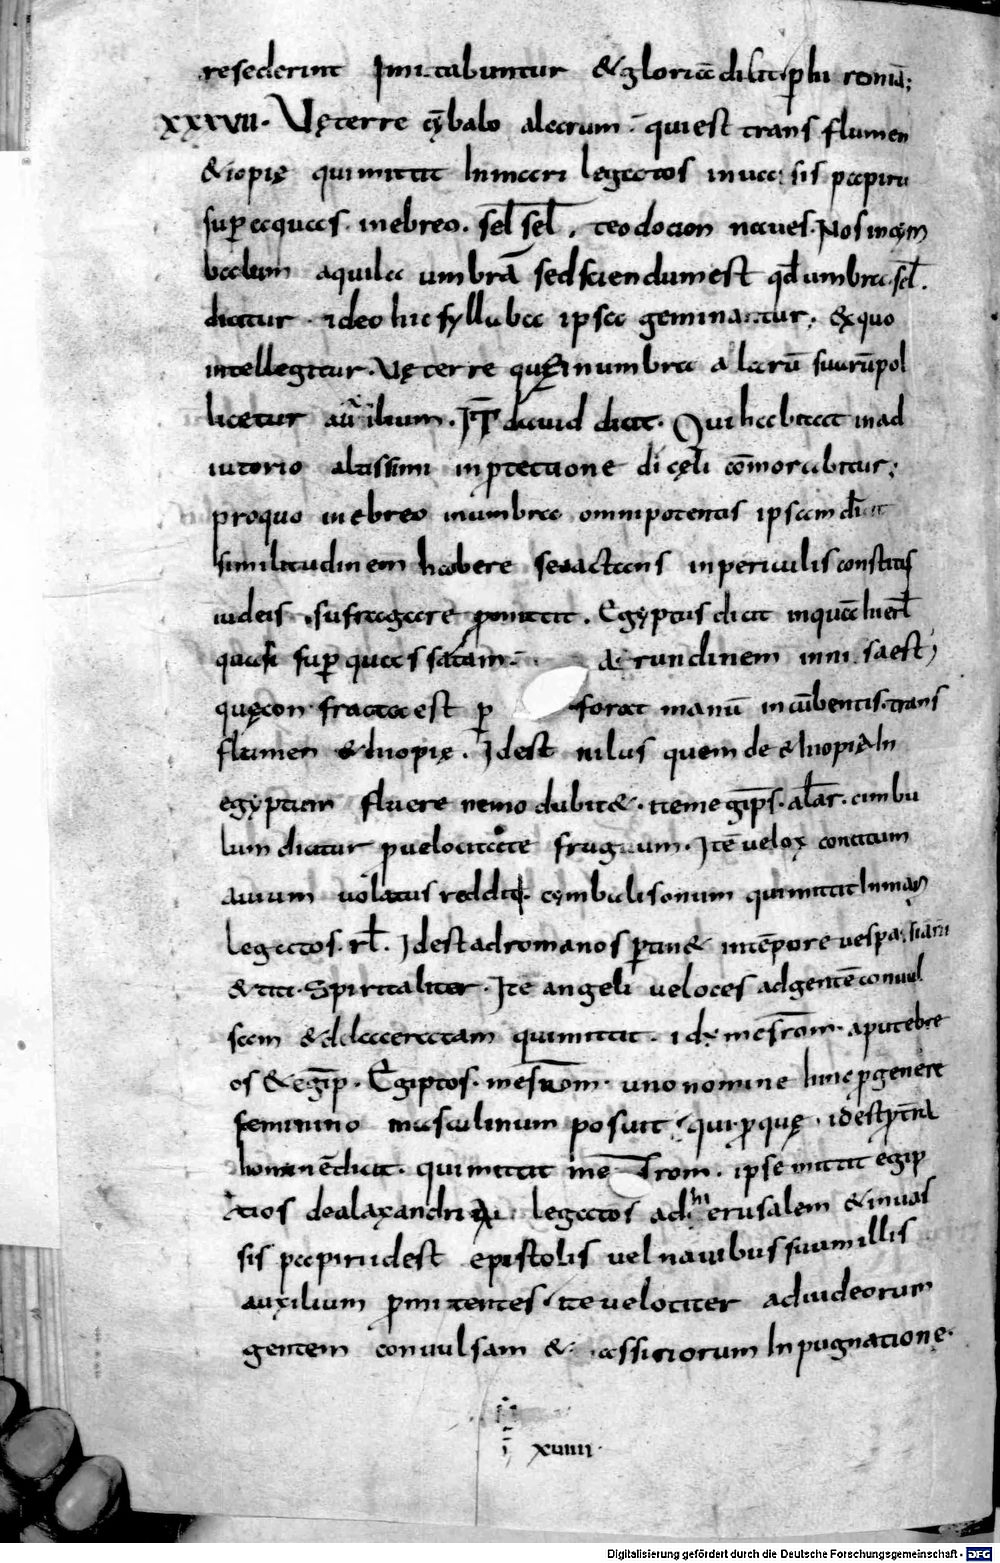 resederint Imitabuntur & gloriã dicit p̱ hi romã;
XXXVII. Vę terre cȳbalo alarum. qui est trans flumen
&iopię qui mittit In mari legatos in uasis papiru
suꝑ aquas. in ebreo. sel̄ sel̄. teodocion naues. Nos in cym
balum aquila umbrã sed sciendum est qd̄ umbra. sel̄.
dicitur. ideo hic syllaba ipsa geminatur. Ex quo
intellegitur. Vę terre quę In umbra alarū suarū pol
licetur auxilium. IT dauid dicit. Qui habitat in ad
iutorio altissimi in ꝓtectione di cęli cōmorabitur;
pro quo in ebreo in umbra omnipotentis ipsam dicit
similitudinem habere se iactans in periculis constitis
iudeis sufragare ꝓmittit. Egyptus dicit in qua hierl̄
quasi suꝑ quassatam. arundinem innisa est,
quę confracta est ꝑ forat manū incūbentis. trans
flumen &hiopię. Idest nilus quem de &hiopia In
egyptum fluere nemo dubit&. item egips. alar. cimbu
lum dicitur ꝓ uelocitate frugum. Itē uelox concitum
auium uolatus reddit cymbalisonum qui mittit In mari
legatos. rl̄. Idest ad romanos ꝑtin& in tēpore uespasiani
& titi. Spiritaliter. Itē angeli ueloces ad gentē conuul
sam & dilaceratam qui mittit. id; mesrom. aput ebre
os & egip̄. Egiptos. mesrom. uno nomine hinc ꝓ genere
feminino masculinum posuit. qui ꝓ quę. idest
hominē dicit. qui mittit mesrom. ipse mittit egip
tios de alaxandria legatos ad hierusalem & in uas
sis papiri idest epistolis uel nauibus suam illis
auxilium ꝓmittentes. ite uelociter ad iudeorum
gentem conuulsam & assiriorum Inpugnatione.
xuiiii.